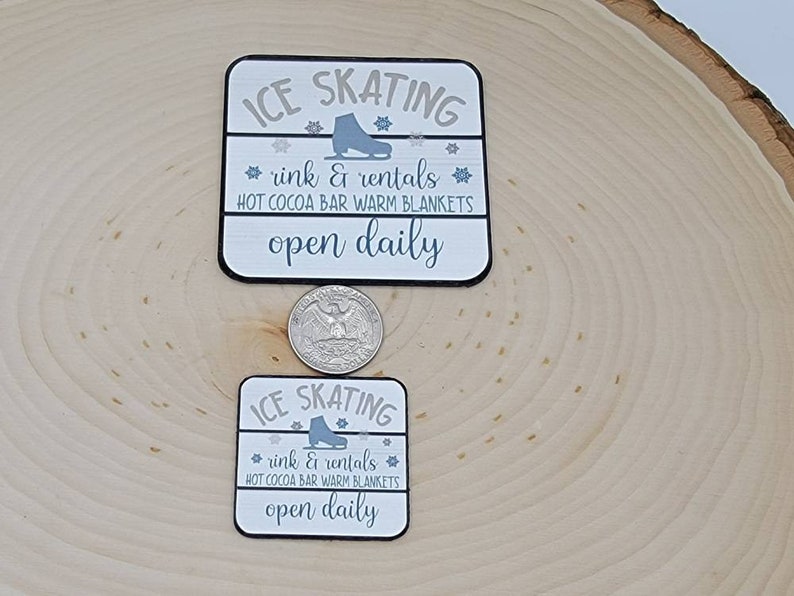 ICE SKATING
rink & rentals
HOT COCOA BAR WARM BLANKETS
open daily
ICE SKATING
rink & rentals
HOT COCOA BAR WARM BLANKETS
open daily